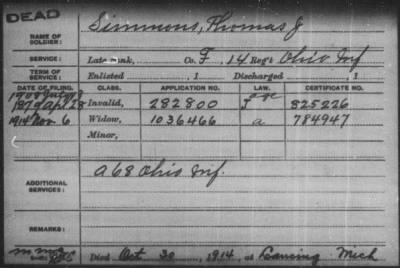 DEAD
NAME OF SOLDIER: Simmons, Thomas J
SERVICE: Late rank, Co. F, 14 Reg't Ohio Inf
TERM OF SERVICE: Enlisted , 1 Discharged , 1
DATE OF FILING. CLASS. APPLICATION NO. LAW. CERTIFICATE NO.
1908
1879 Apl 28 Invalid, 282800 825226
1914 Nov 6 Widow, 1036466 a 784947
Minor,
ADDITIONAL SERVICES: A 68 Ohio Inf.
REMARKS:
Died Oct 30, 1914, at Lansing Mich